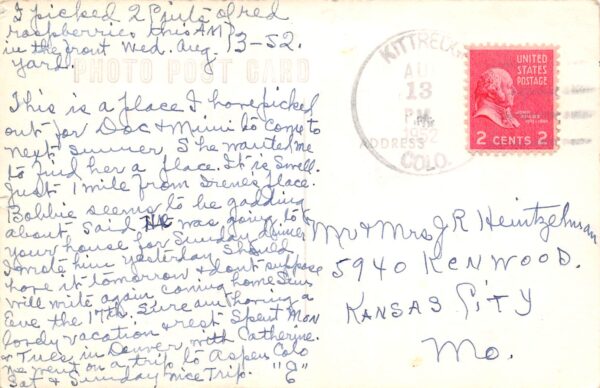 I picked 2 Pints of red
raspberries this AM
in the front Wed. Aug. 13-52.
yard.
PHOTO POST CARD
This is a place I have picked
out for Doc & Mimi to come to
next summer She wanted me
to find her a place. It is swell.
Just 1 mile from Irenes place.
Bobbie seems to be gadding
about, said He was going to
your house for Sunday dinner
I wrote him yesterday should
have it tomorrow & dont suppose
will write again coming home Sun
Eve the 17th. Sure am having a
lovely vacation & rest Spent Mon
& Tues, in Denver with Catheryne.
We went on a trip to Aspen Colo
Sat & Sunday nice Trip. "G"
KITTREDGE
AUG
13
PM
1952
COLO.
ADDRESS
UNITED
STATES
POSTAGE
JOHN ADAMS
1797-1801
2 CENTS 2
Mr & Mrs J R Heintzelman
5940 KENWOOD.
KANSAS CITY
Mo.